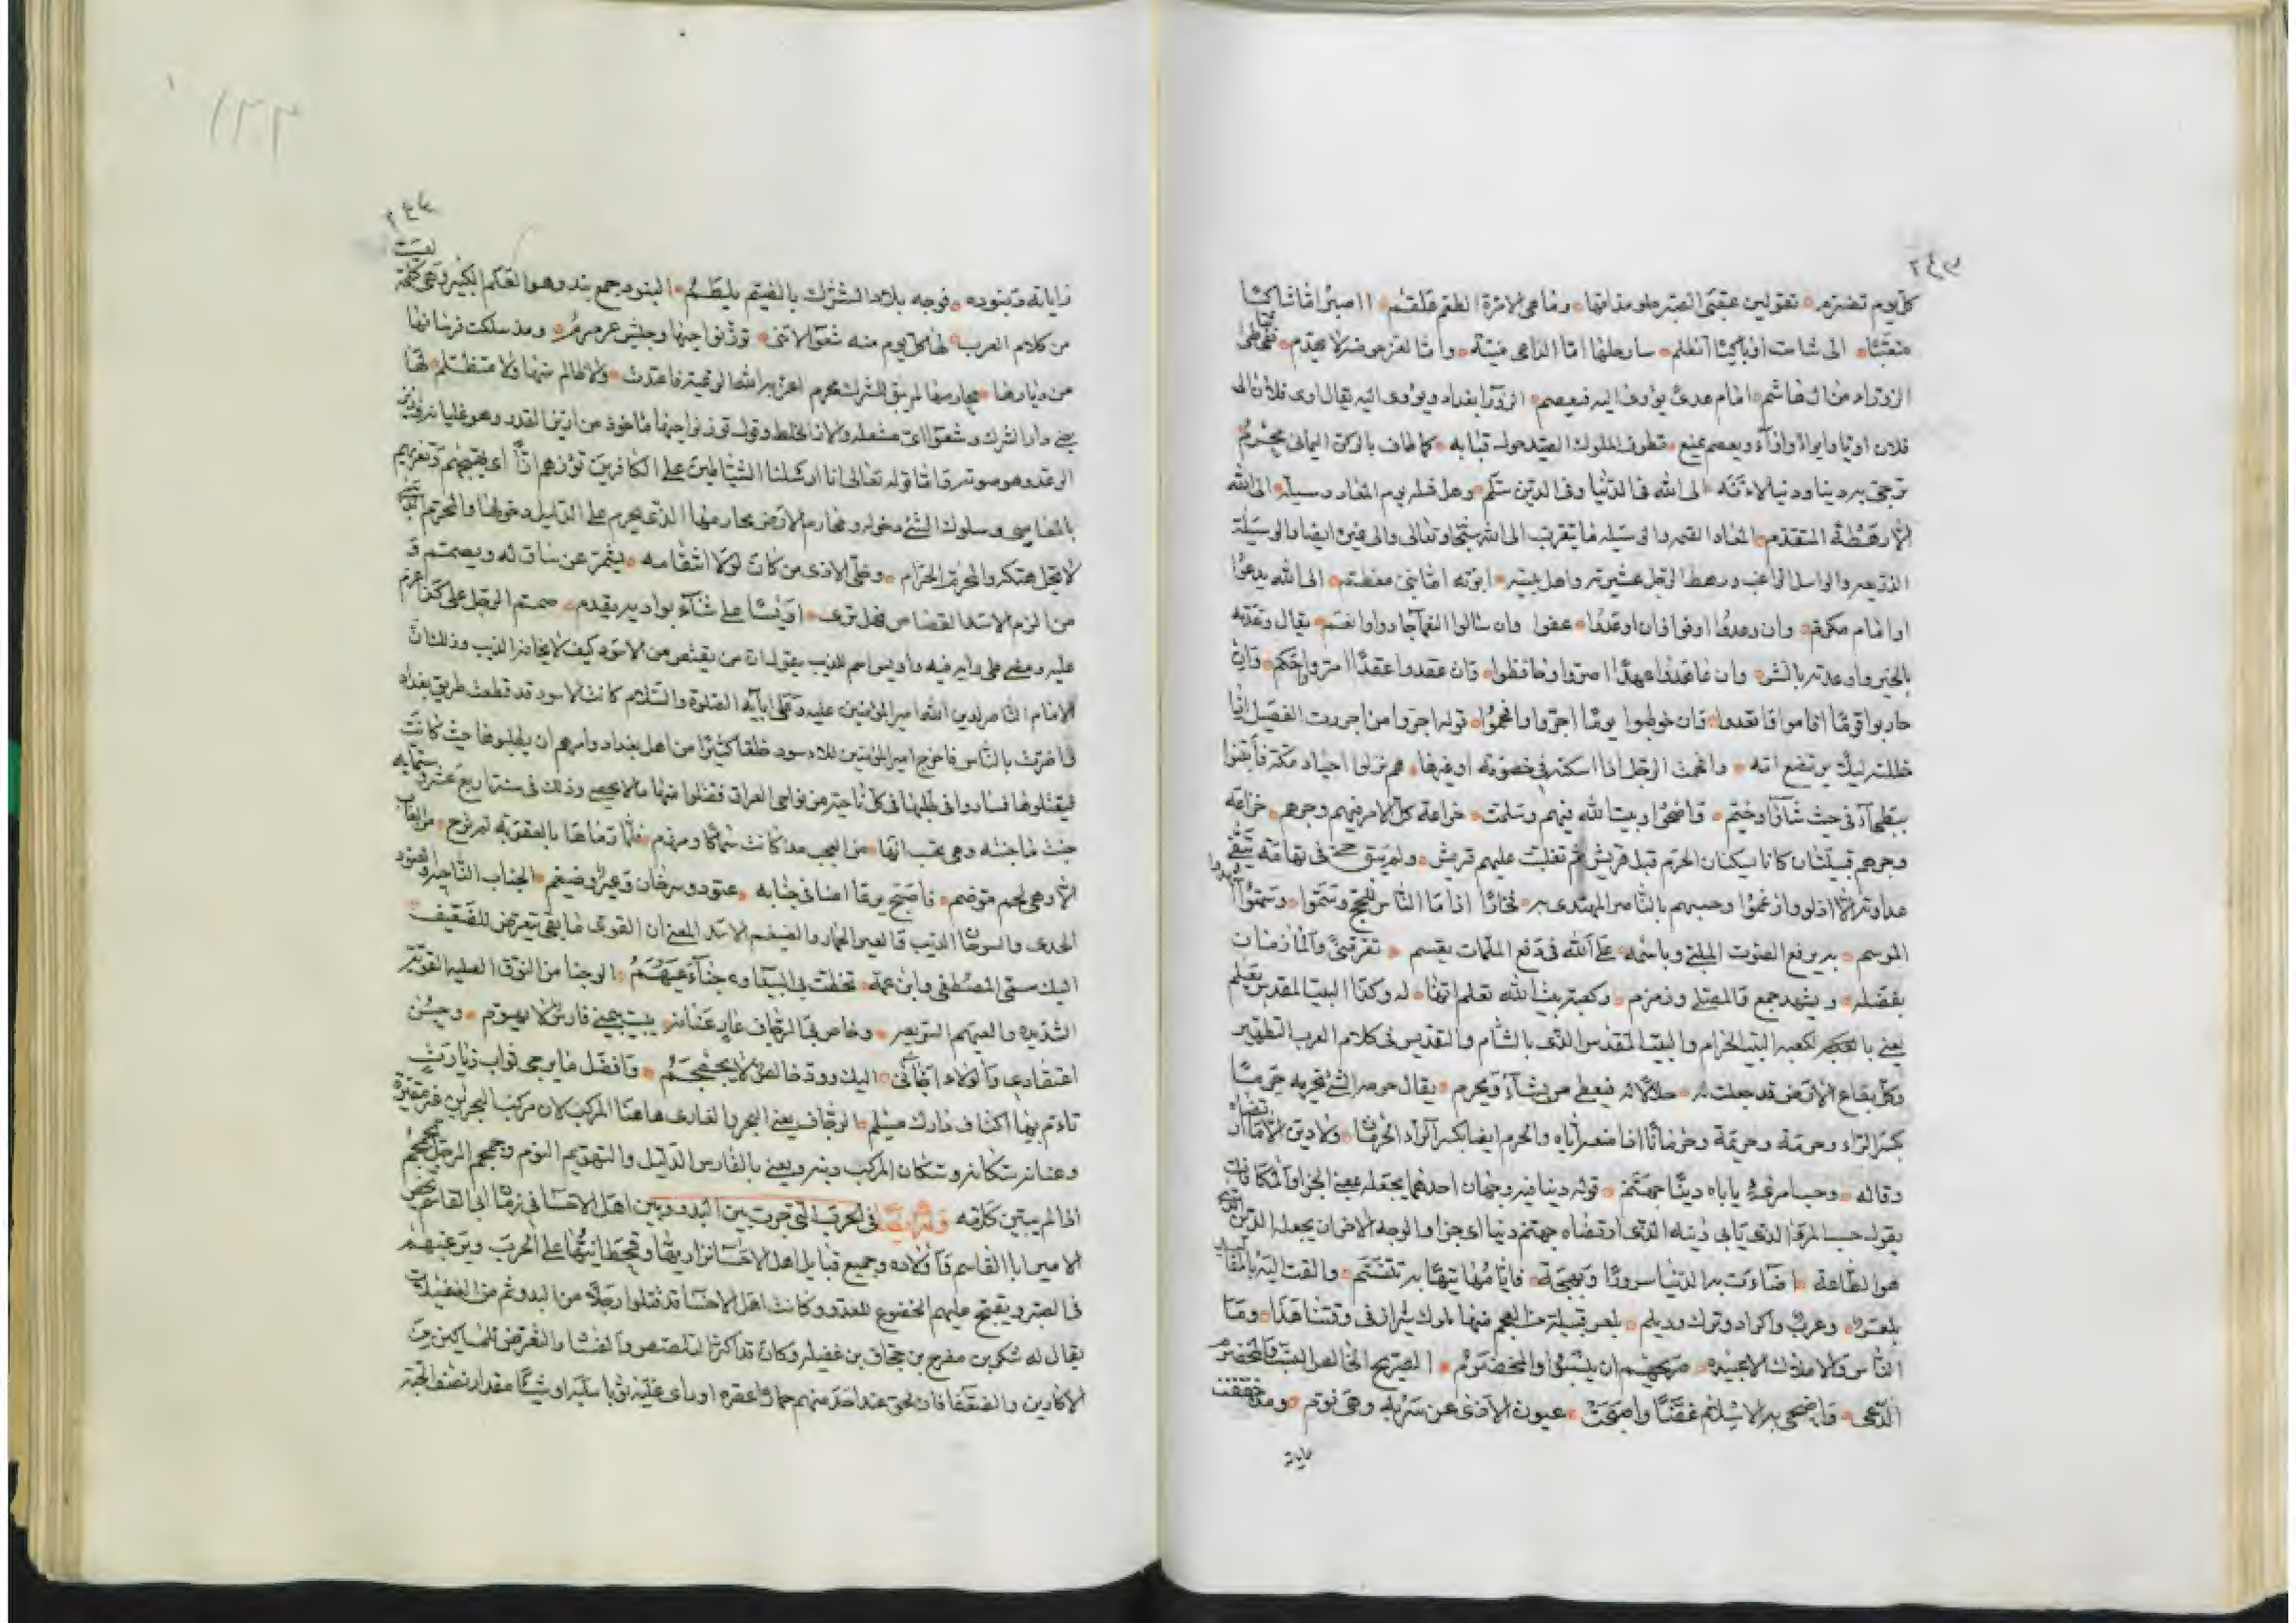 كل يوم تضرم تقولين عقبى الصبر حلو مذاقها وما هي الا مرة الطعم علقم ااصبر اما شاكيا
متعتبا الى شامت او باكيا اتظلم سارحلها اما الداعي منية واما لعز حوضه لا يهدم فخطي
الزوراء من ال هاشم امام هدى يؤوى اليه فيعصم الزورا بغداد ويؤوى اليه يقال اوى فلان الى
فلان اويا وايواء واواء ويعصم يمنع تطوف الملوك الصيد حول قبابه كما طاف بالركن اليماني محرم
ترجى به دينا ودنيا لانه الى الله في الدنيا وفي الدين سلم وهل قبله يوم المعاد وسيلة الى الله
الا رهطه المتقدم المعاد القيمه والوسيله ما يتقرب به الى الله سبحانه وتعالى والى غيره ايضا والوسيلة
الذريعه والواسل الراغب ورهط الرجل عشيرته واهل بيته ابوته اما نبي معظم الى الله يدعو
او امام مكرم وان وعدوا اوفوا وان اوعدوا عفوا وان سالوا النعما جادوا وانعموا يقال وعدته
بالخير واوعدته بالشر وان عاهدوا عهدا اصروا وحافظوا وان عقدوا عقدا امروا واحكموا وان
حاربوا قوما اقاموا واقعدوا وان خوطبوا يوما اجروا وافحموا قوله اجروا من اجررت الفصيل اذا
خللته ليلا يرتضع امه وافحمت الرجل اذا اسكته في خصومة او غيرها هم نزلوا اجياد مكة فابتنوا
ببطحاء في حيث شاؤا وخيموا فاضحوا وبيت الله فيهم وسلمت خزاعة كل الامر فيهم وجرهم خزاعة
وجرهم قبيلتان كانا يسكنان الحرم قبل قريش ثم تغلبت عليهم قريش ولم يبق حي في تهامة يتقى
عداوته الا اذلوا وارغموا وحسبهم بالناصر المهتدى به فخارا اذا ما الناس للحج يمموا وسموا
الموسم به يرفع الصوت الملبي وباسمه على الله في دفع الملمات يقسم تفر منى والمازمان
بفضله ويشهد جمع والمصلى وزمزم وكعبة بيت الله تعلم انها له وكذا البيت المقدس يعلم
يعني بالكعبه كعبه البيت الحرام والبيت المقدس الذي بالشام والتقديس في كلام العرب التطهير
وكل بقاع الارض قد جعلت له حلالا له فيعطي من يشاء ويحرم يقال حرمه الشئ يحرمه حرما
بكسر الراء وحرمة وحريمة وحرمانا اذا منعه اياه والحرم ايضا بكسر الراء الحرمان ولا دين الا ما ارتضاه
وقاله وحسب امرئ ياباه دينا جهنم قوله دينا فيه وجهان احدهما يجعله بمعنى الجزا والمكافات
يقول حسب امرئ الذي يابى دينه الذي ارتضاه جهنم دينا اي جزا والوجه الاخر ان يجعله الدين الذي
هو الطاعة اضاءت به الدنيا سرورا وبهجة فايامها تيها به تتبسم والقت اليه بالمقاليد
بلغر وعرب واكراد وترك وديلم بلغر قبيلة من العجم منها ملوك شيراز في وقتنا هذا وما
الناس والاملاك الا عبيده صريحهم ان ينسبوا والمخضرم الصريح الخالص النسب والمخضرم
الدعي واضحى به الاسلام غضا واصبحت عيون الاذى عن سربه وهي نوم ومذ خفقت
راياته
راياته وبنوده فوجه بلاد الشرك بالضيم يلطم البنود جمع بند وهو العلم الكبير وهي كلمة ليست
من كلام العرب لها كل يوم منه شعوا لا تنى تؤز نواحيها وجيش عرمرم ومذ سلكت فرسانها
من ديارها محارمها لم يبق للشرك محرم اعز به الله الرعية فاغتدت ولا ظالم منها ولا متظلم لها
يعني دار الشرك وشعوا اي مشعله ولا انا الخلط وقوله توز نواحيها ماخوذ من ازيز القدر وهو غليانه وازيز
الرعد وهو صوته واما قوله تعالى انا ارسلنا الشياطين على الكافرين تؤزهم ازا اي يهيجهم وتغريهم
بالمعاصي وسلوك الشئ دخوله ومحارم الارض محارمها الذي يحرم على الذليل دخولها والمحرم الذي
لا يحل هتكه والمحرم الحرام وخلى الاذى من كان لولا انتقامه يشمر عن ساق له ويصمم و
من الزم الاسد القصاص فهل ترى اويسا على شاء بواد به يقدم صمم الرجل على كذا عزم
عليه ومضى على رايه فيه واويس اسم للذيب يقول ان من يقتص من الاسود كيف لا يحاذر الذيب وذلك ان
الامام الناصر لدين الله امير المؤمنين عليه وعلى ابايه الصلوة والسلام كانت الاسود قد قطعت طريق بغداد
واضرت بالناس فاخرج امير المؤمنين للاسود خلقا كثيرا من اهل بغداد وامرهم ان يطلبوها حيث كانت
فيقتلوها فساروا في طلبها في كل ناحية من نواحي العراق فقتلوا منها ما لا يحصى وذلك في سنة اربع عشر وستمايه
جنت ما جنته وهي تحسب انها من العجب مذ كانت شماتا ومرغم فلما رماها بالعقوبة لم ترح من الغاب
الا وهي لحم موضم فاصبح يرعا امنا في جنابه عتود وسرحان وعير وضيغم الجناب الناحيه والعتود
الجدي والسرحان الذيب والعير الحمار والضيغم الاسد المعنى ان القوى ما بقى يتعرض للضعيف
اليك سمي المصطفى وابن عمه تخطت بي البيدا وجناء عيهم الوجنا من النوق الصلبه القويه
الشديده والعيهم السريعه وخاض بي الرجاف عار عنانه يبيت بجنبي فارس لا يهوم وحسن
اعتقادي والولاء اتى بي اليك وود خالص لا يجمجم وافضل ما يرجى ثواب زيارة
تادتم بها اكناف دارك مسلم الرجاف يعني البحر والعارى هاهنا المركب لان مركب البحر لين غير عقيرة
وعنانه سكانه وسكان المركب دينه ويعني بالفارس الدليل والتهويم النوم وجمجم الرجل يجمجم
اذا لم يبين كلامه وله ايضا في الحرب التي جرت بين البدو وبين اهل الاحسا في زمان ابي القاسم يحض
الامير ابا القاسم واولاده وجميع قبايل اهل الاحسا نزاريها وقحطانيها على الحرب ويرغبهم
في الصبر ويقبح عليهم الخضوع للعدو وكانت اهل الاحسا قد قتلوا رجلا من البدو ثم من الغفيلات
يقال له شكر بن مفرح بن جحاف بن غفيله وكان قد اكثر التلصص والفساد والتعرض للمساكين من
الاكارين والضعفا فان لحق عند احد منهم حمارا عقره او راى عليه ثوبا سلبه او شيئا مقدار نصف الحبة